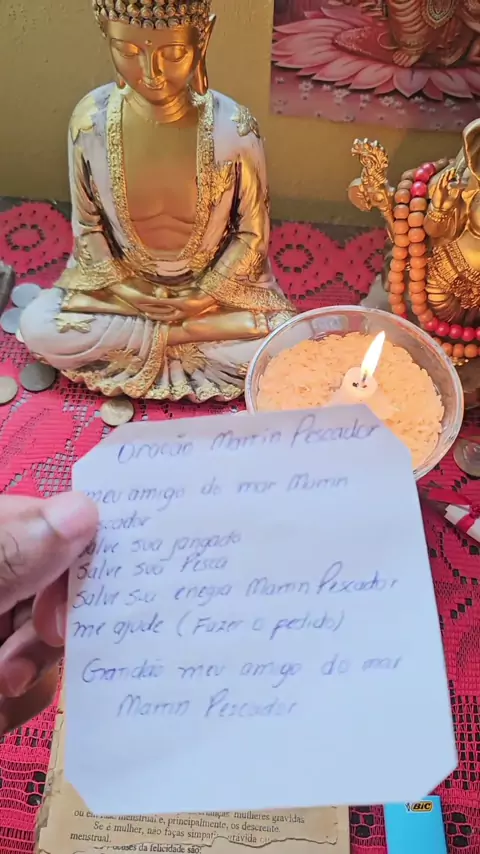 Oração Martin Pescador
meu amigo do mar Martin
escador
Salve sua jangada
Salve sua Pesca
Salve sua enegia Martin Pescador
me ajude (Fazer o pedido)
Gratidão meu amigo do mar
Martin Pescador
menstrual e, principalmente, os descrente.
Se é mulher, não faças simpatia grávida
menstrual.
da felicidade são:
BIC